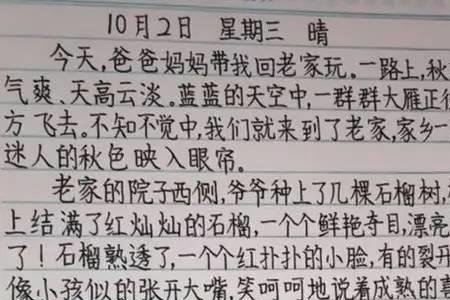 10月2日 星期三 晴
今天,爸爸妈妈带我回老家玩。一路上,秋
气爽、天高云淡。蓝蓝的天空中,一群群大雁正往
方飞去。不知不觉中,我们就来到了老家,家乡一
迷人的秋色映入眼帘。
老家的院子西侧,爷爷种上了几棵石榴树,
上结满了红灿灿的石榴,一个个鲜艳夺目,漂亮
了!石榴熟透了,一个个红扑扑的小脸,有的裂开
像小孩似的张开大嘴,笑呵呵地说着成熟的喜